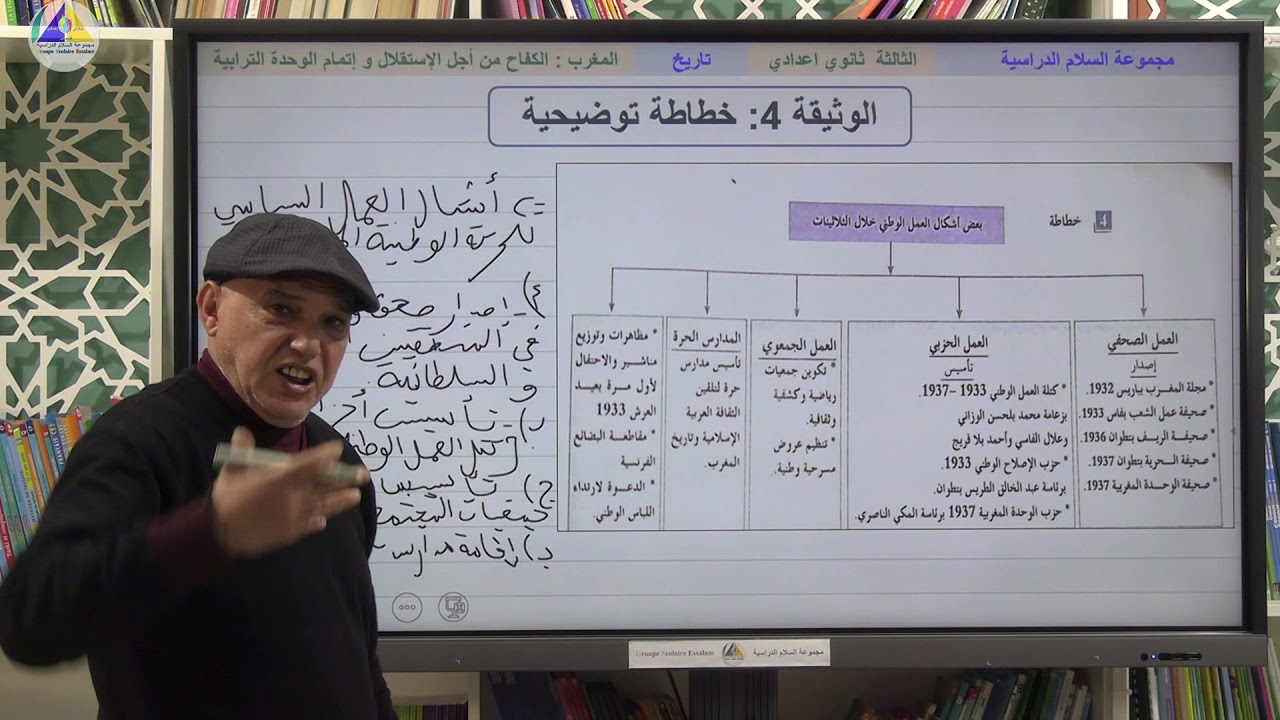 مجموعة السلام الدراسية
Groupe Scolaire Essalam
مجموعة السلام الدراسية
الثالثة ثانوي اعدادي
تاريخ
المغرب : الكفاح من أجل الإستقلال و إتمام الوحدة الترابية
الوثيقة 4: خطاطة توضيحية
4 خطاطة
بعض أشكال العمل الوطني خلال الثلاثينات
العمل الصحفي
إصدار
* مجلة المغرب بباريس 1932.
* صحيفة عمل الشعب بفاس 1933.
* صحيفة الريف بتطوان 1936
* صحيفة الحرية بتطوان 1937.
* صحيفة الوحدة المغربية 1937
العمل الحزبي
تأسيس
* كتلة العمل الوطني 1933 -1937.
بزعامة محمد بلحسن الوزاني
وعلال الفاسي وأحمد بلا فريج
* حزب الإصلاح الوطني 1933.
برئاسة عبد الخالق الطريس بتطوان.
* حزب الوحدة المغربية 1937 برئاسة المكي الناصري.
العمل الجمعوي
* تكوين جمعيات
رياضية وكشفية
وثقافية.
* تنظيم عروض
مسرحية وطنية.
المدارس الحرة
تأسيس مدارس
حرة لتلقين
الثقافة العربية
الإسلامية وتاريخ
المغرب.
* مظاهرات وتوزيع
مناشير والاحتفال
لأول مرة بعيد
العرش 1933
* مقاطعة البضائع
الفرنسية
* الدعوة لارتداء
اللباس الوطني.
أشكال العمال السياسي
للحركة الوطنية
أ)- إصدار صحف
في المنطقتين
و السلطانية.
ب)- تأسيس
كتل العمل
ج) تأسيس
جمعيات المجتمع
د) إقامة مدارس
Groupe Scolaire Essalam
مجموعة السلام الدراسية